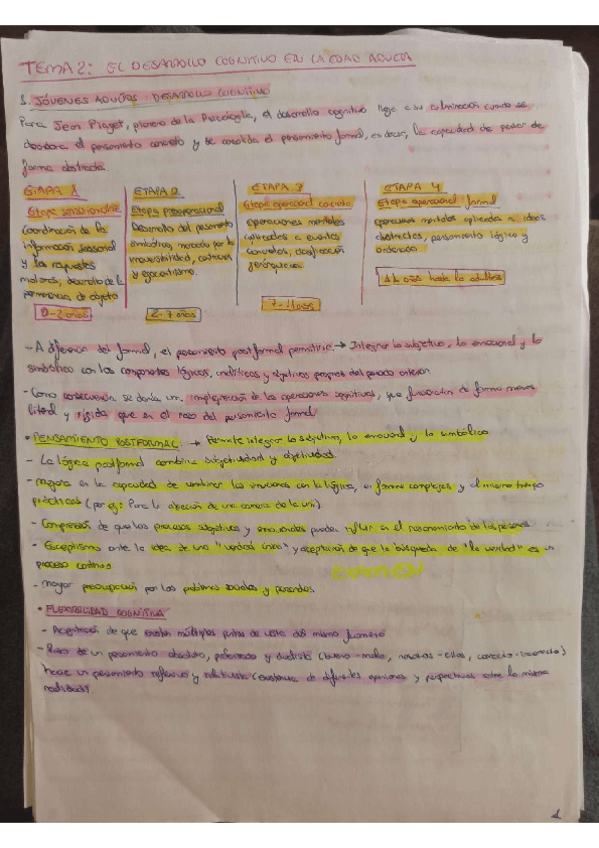 TEMA 2: EL DESARROLLO COGNITIVO EN LA EDAD ADULTA
1. JÓVENES ADULTOS: DESARROLLO COGNITIVO
Para Jean Piaget, pionero de la Psicología, el desarrollo cognitivo llega a su culminación cuando se
abandona el pensamiento concreto y se consolida el pensamiento formal, es decir, la capacidad de pensar de
forma abstracta.
ETAPA 1
Etapa sensoriomotriz
Coordinación de la
información sensorial
y las respuestas
motoras, desarrollo de la
permanencia de objeto
0-2 años
ETAPA 2
Etapa preoperacional
Desarrollo del pensamiento
simbólico, marcado por la
irreversibilidad,
y egocentrismo.
2-7 años
ETAPA 3
Etapa operacional concreta
operaciones mentales
aplicadas a eventos
concretos, clasificación
jerárquicas
7-11 años
ETAPA 4
Etapa operacional formal
operaciones mentales aplicadas a ideas
abstractas, pensamiento lógico y
ordenado
11 años hasta la adultez
- A diferencia del formal, el pensamiento postformal permitiría → Integrar lo subjetivo, lo emocional y lo
simbólico con los componentes lógicos, analíticos y objetivos propios del periodo anterior.
- Como consecuencia se daría una de las operaciones cognitivas, que funcionan de forma menos
literal y rígida que en el caso del pensamiento formal
• PENSAMIENTO POSTFORMAL → Permite integrar lo subjetivo, lo emocional y lo simbólico
- La lógica postformal combina subjetividad y objetividad.
- Mejora en la capacidad de combinar las emociones con la lógica, en formas complejas y al mismo tiempo
prácticas (por ej: Para la elección de una carrera de la uni)
- Comprensión de que los procesos subjetivos y emocionales pueden influir en el razonamiento de las personas
- Escepticismo ante la idea de una "verdad única" y aceptación de que la búsqueda de "la verdad" es un
proceso continuo
EXAMEN
- Mayor preocupación por los problemas sociales y personales.
• FLEXIBILIDAD COGNITIVA
- Aceptación de que existen múltiples puntos de vista del mismo fenómeno
- Paso de un pensamiento absoluto, polarizado y dualista (bueno-malo, nosotros-ellos, correcto-incorrecto)
hacia un pensamiento reflexivo y relativista (existencia de diferentes opiniones y perspectivas sobre la misma
realidad).
1